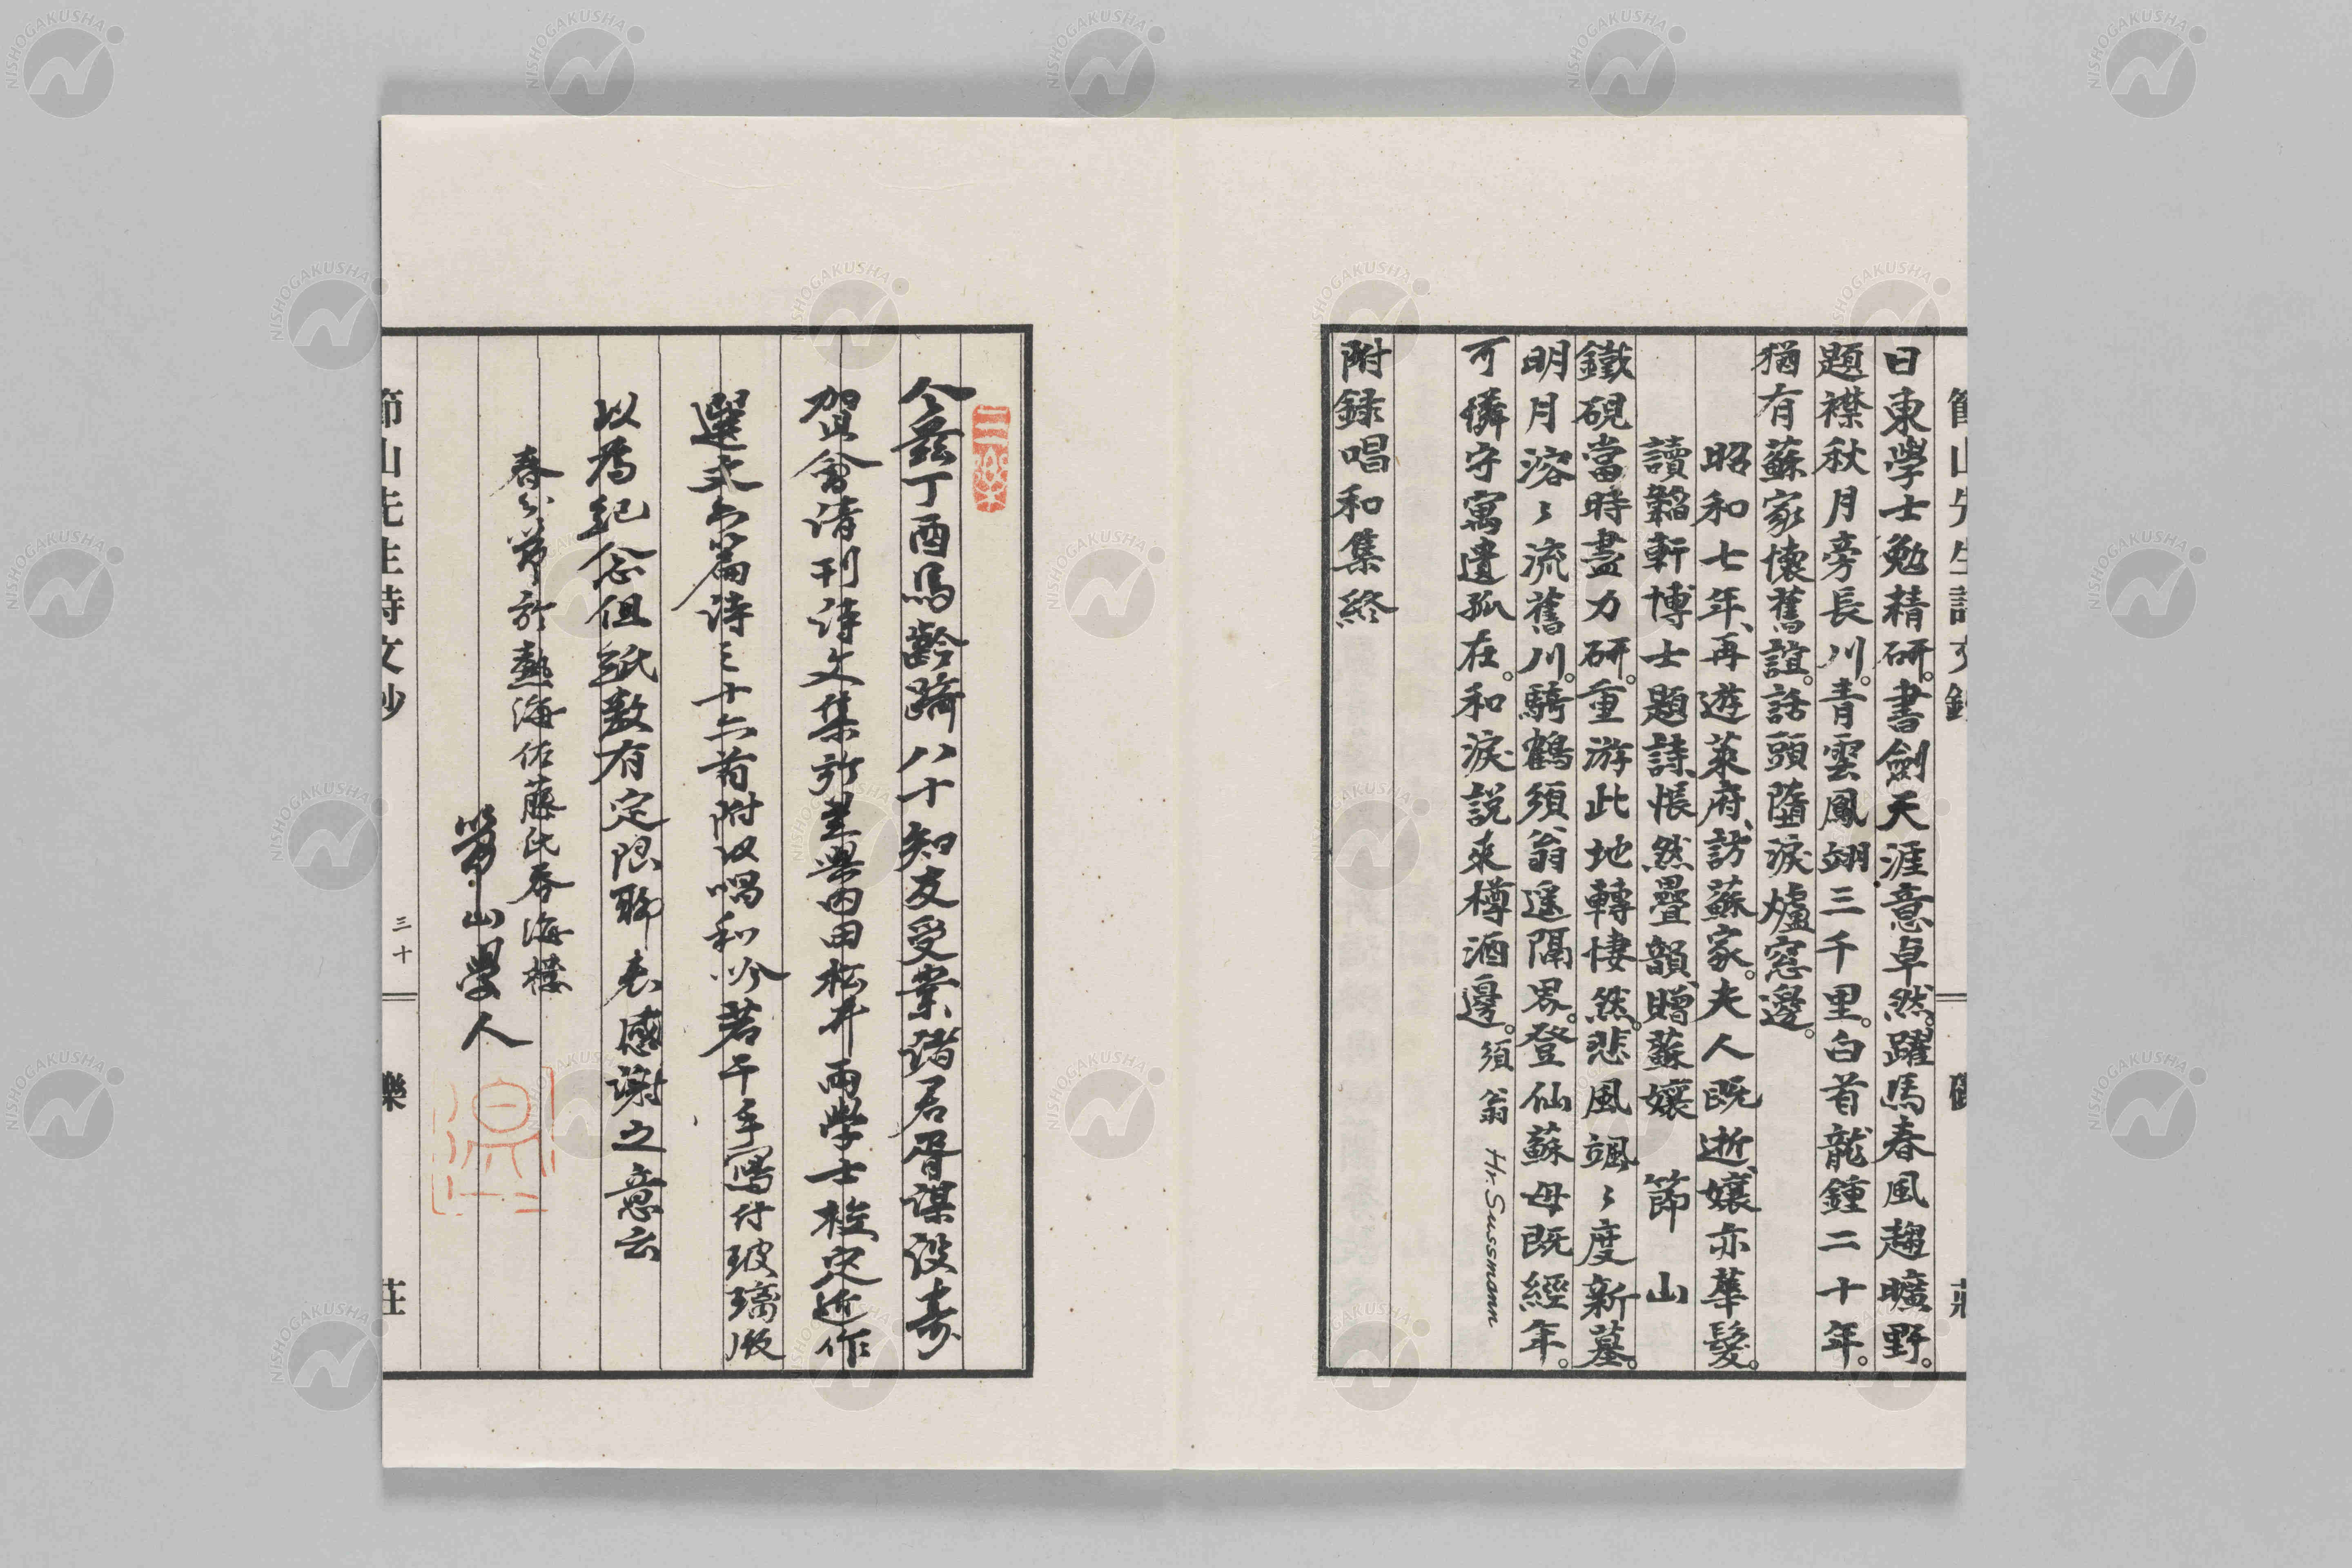 日東學士勉精研。書劍天涯意卓然。躍馬春風趨曠野。
題襟秋月旁長川。青雲鳳翊三千里。白首龍鍾二十年。
猶有蘇家懷舊誼。話頭墮淚爐窓邊。
昭和七年、再遊萊府、訪蘇家。夫人既逝、孃亦華髮。
讀豹軒博士題詩、悵然疊韻、贈蘇孃 節山
鐵硯當時盡力研。重游此地轉悽然。悲風颯々度新墓。
明月溶々流舊川。騎鶴須翁遥隔界。登仙蘇母既經年。
可憐守寓遺孤在。和淚説來樽酒邊。須翁 Hr. Sussmann
附録唱和集終
三樂
今茲丁酉馬齡躋八十知友受業諸君胥謀設壽
賀會請刊詩文集於是與内田松井兩學士檢定近作
選文六篇詩三十六首附以唱和吟若干手寫付玻璃版
以爲紀念但紙數有定限聊表感謝之意云
春分節於熱海佐藤氏春海樓
節山學人
節山先生詩文鈔
三十
樂
莊